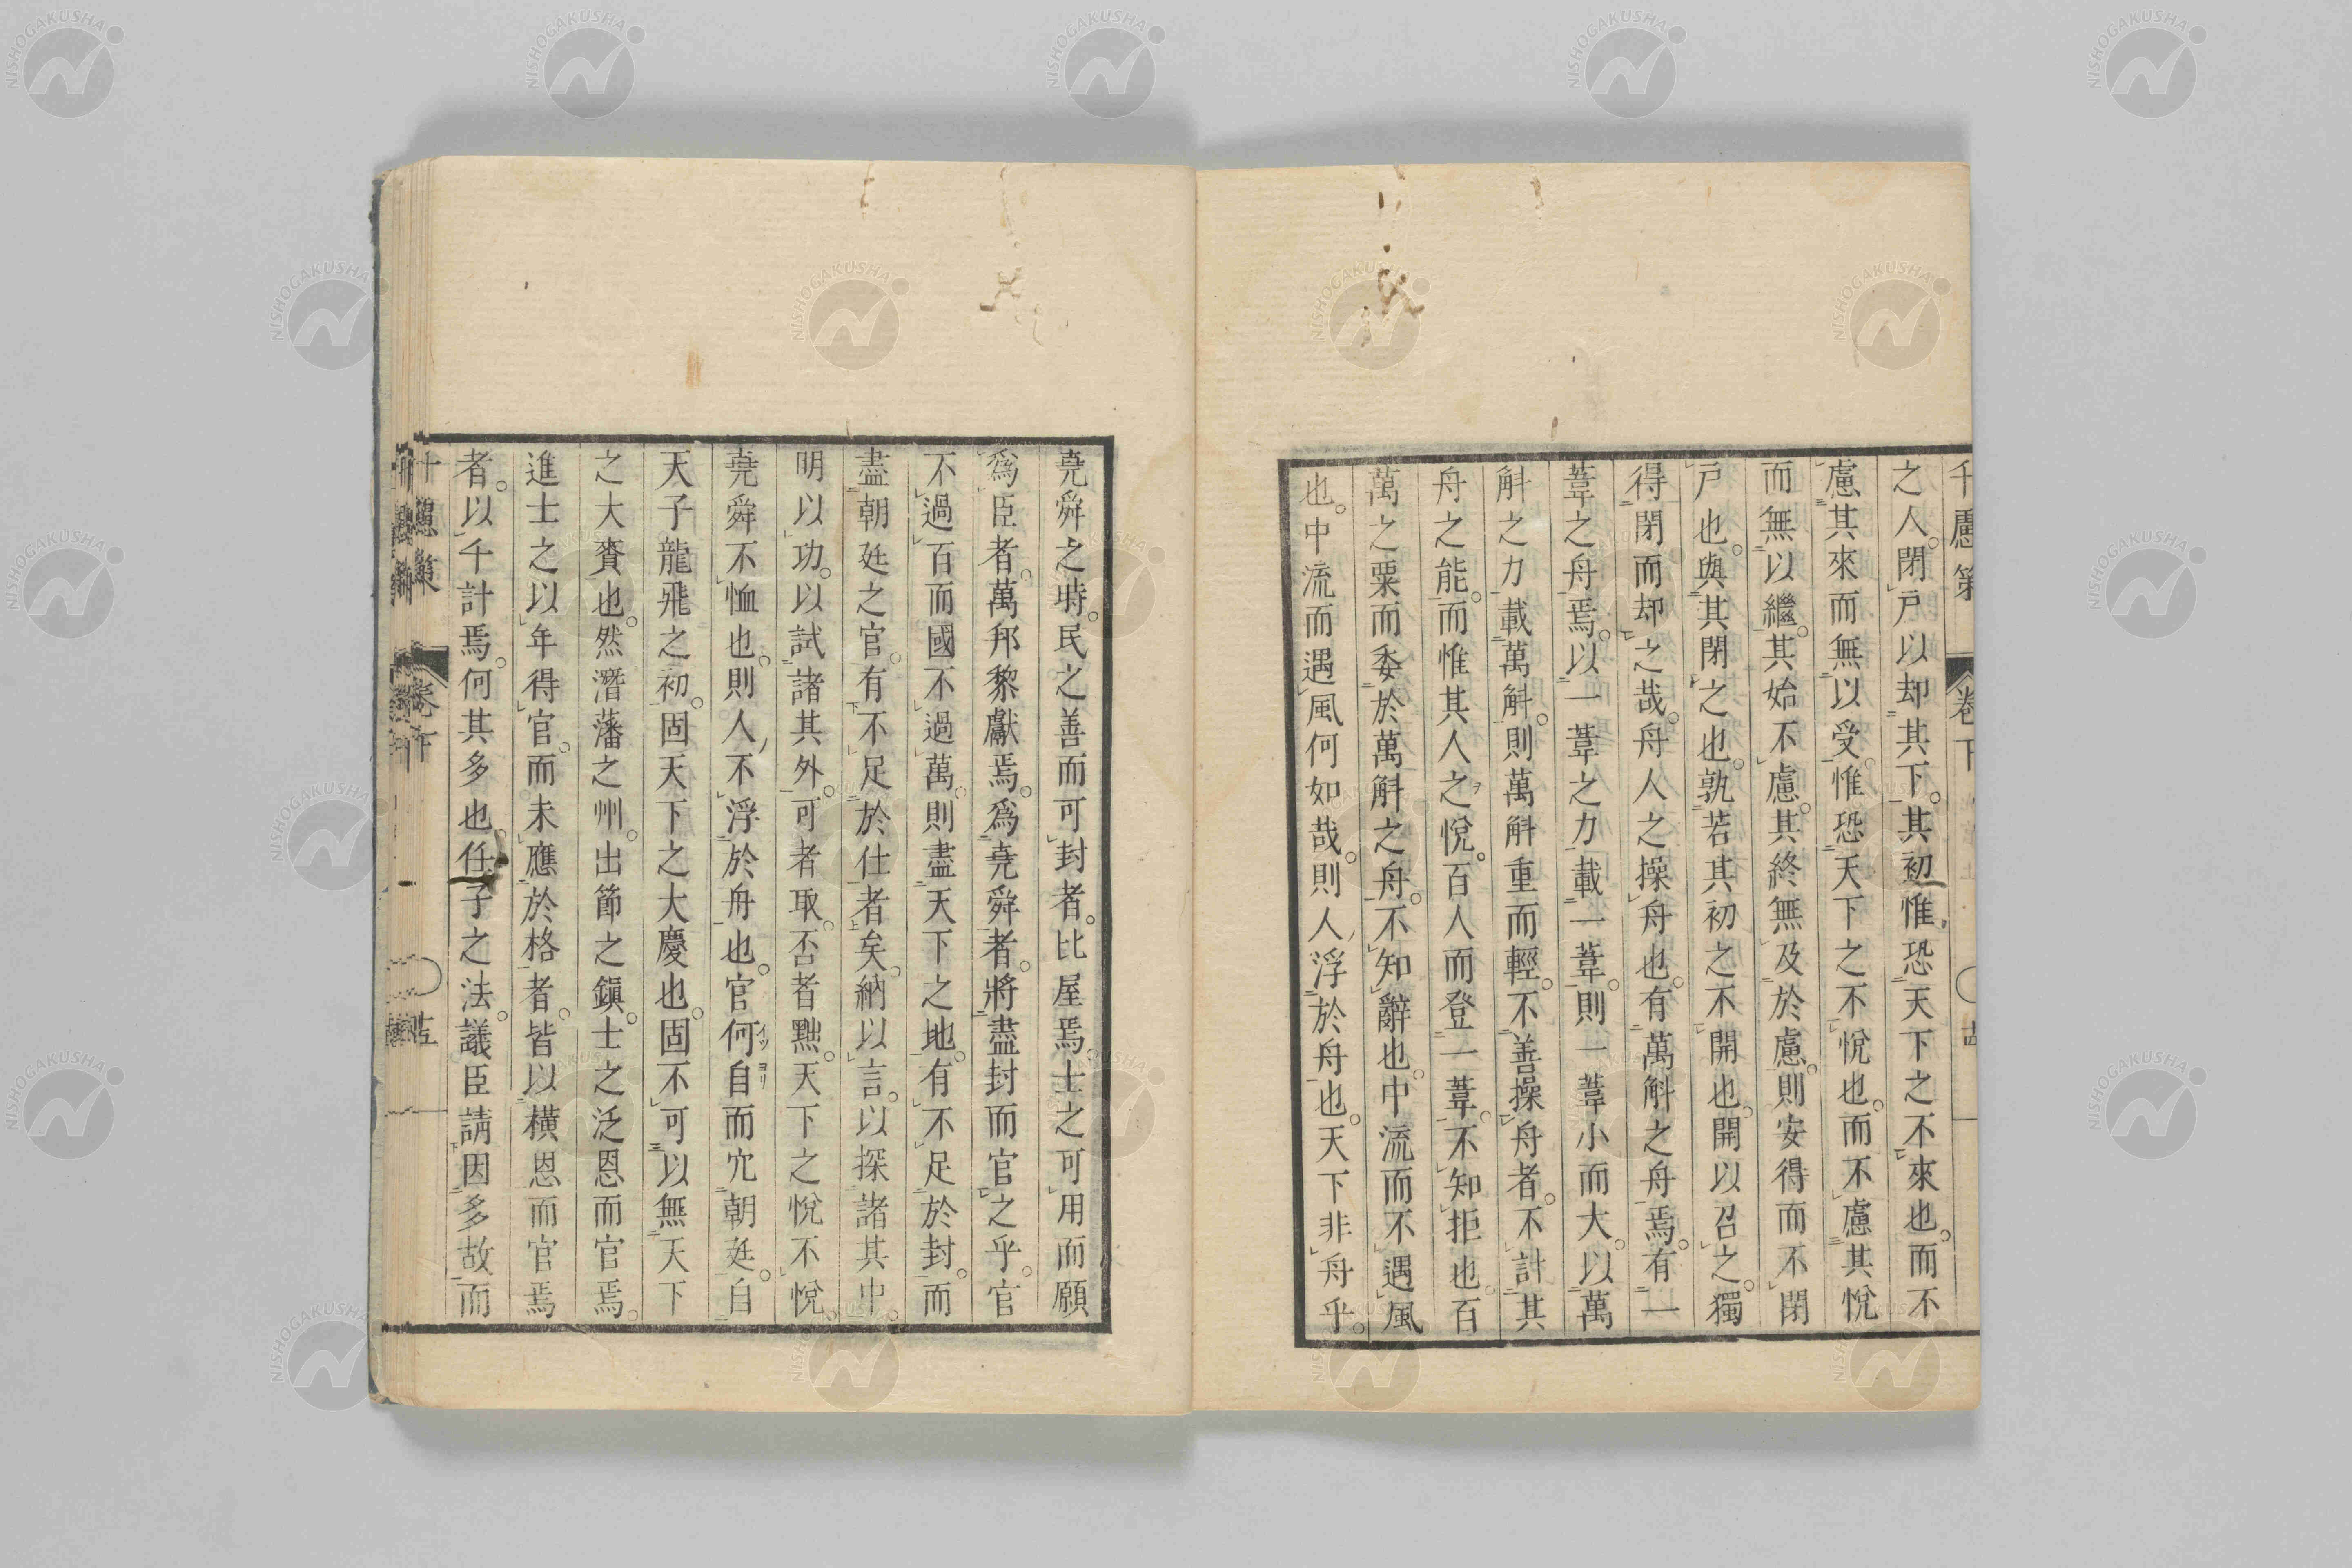 千慮策 卷下
之人。閉戸以却其下。其初惟恐天下之不來也。而不
慮其來而無以受。惟恐天下之不悅也。而不慮其悅
而無以繼。其始不慮。其終無及於慮。則安得而不閉
戸也。與其閉之也。孰若其初之不開也。開以召之。獨
得閉而却之哉。舟人之操舟也。有萬斛之舟焉。有一
葦之舟焉。以一葦之力載一葦。則一葦小而大。以萬
斛之力載萬斛。則萬斛重而輕。不善操舟者。不計其
舟之能。而惟其人之悅。百人而登一葦。不知拒也。百
萬之粟而委於萬斛之舟。不知辭也。中流而不遇風
也。中流而遇風何如哉。則人浮於舟也。天下非舟乎。
堯舜之時。民之善而可封者。比屋焉。士之可用而願
爲臣者。萬邦黎獻焉。爲堯舜者。將盡封而官之乎。官
不過百而國不過萬。則盡天下之地。有不足於封。而
盡朝廷之官。有不足於仕者矣。納以言。以探諸其中。
明以功。以試諸其外。可者取。否者黜。天下之悅不悅。
堯舜不恤也。則人不浮於舟也。官何自而冗朝廷。自
天子龍飛之初。固天下之大慶也。固不可以無天下
之大賚也。然潛藩之州。出節之鎭。士之泛恩而官焉。
進士之以年得官。而未應於格者。皆以橫恩而官焉
者。以千計焉。何其多也。任子之法。議臣請因多故而
千慮策 卷下
NISHOGAKUSHA